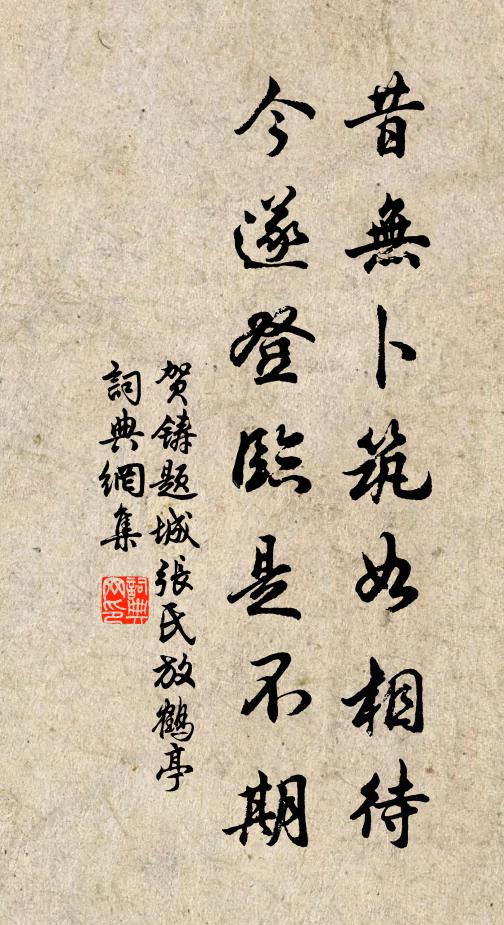 昔無卜筑如相待
今遂登臨是不期
贺铸题城张氏放鶴亭
詞典網集
詞典